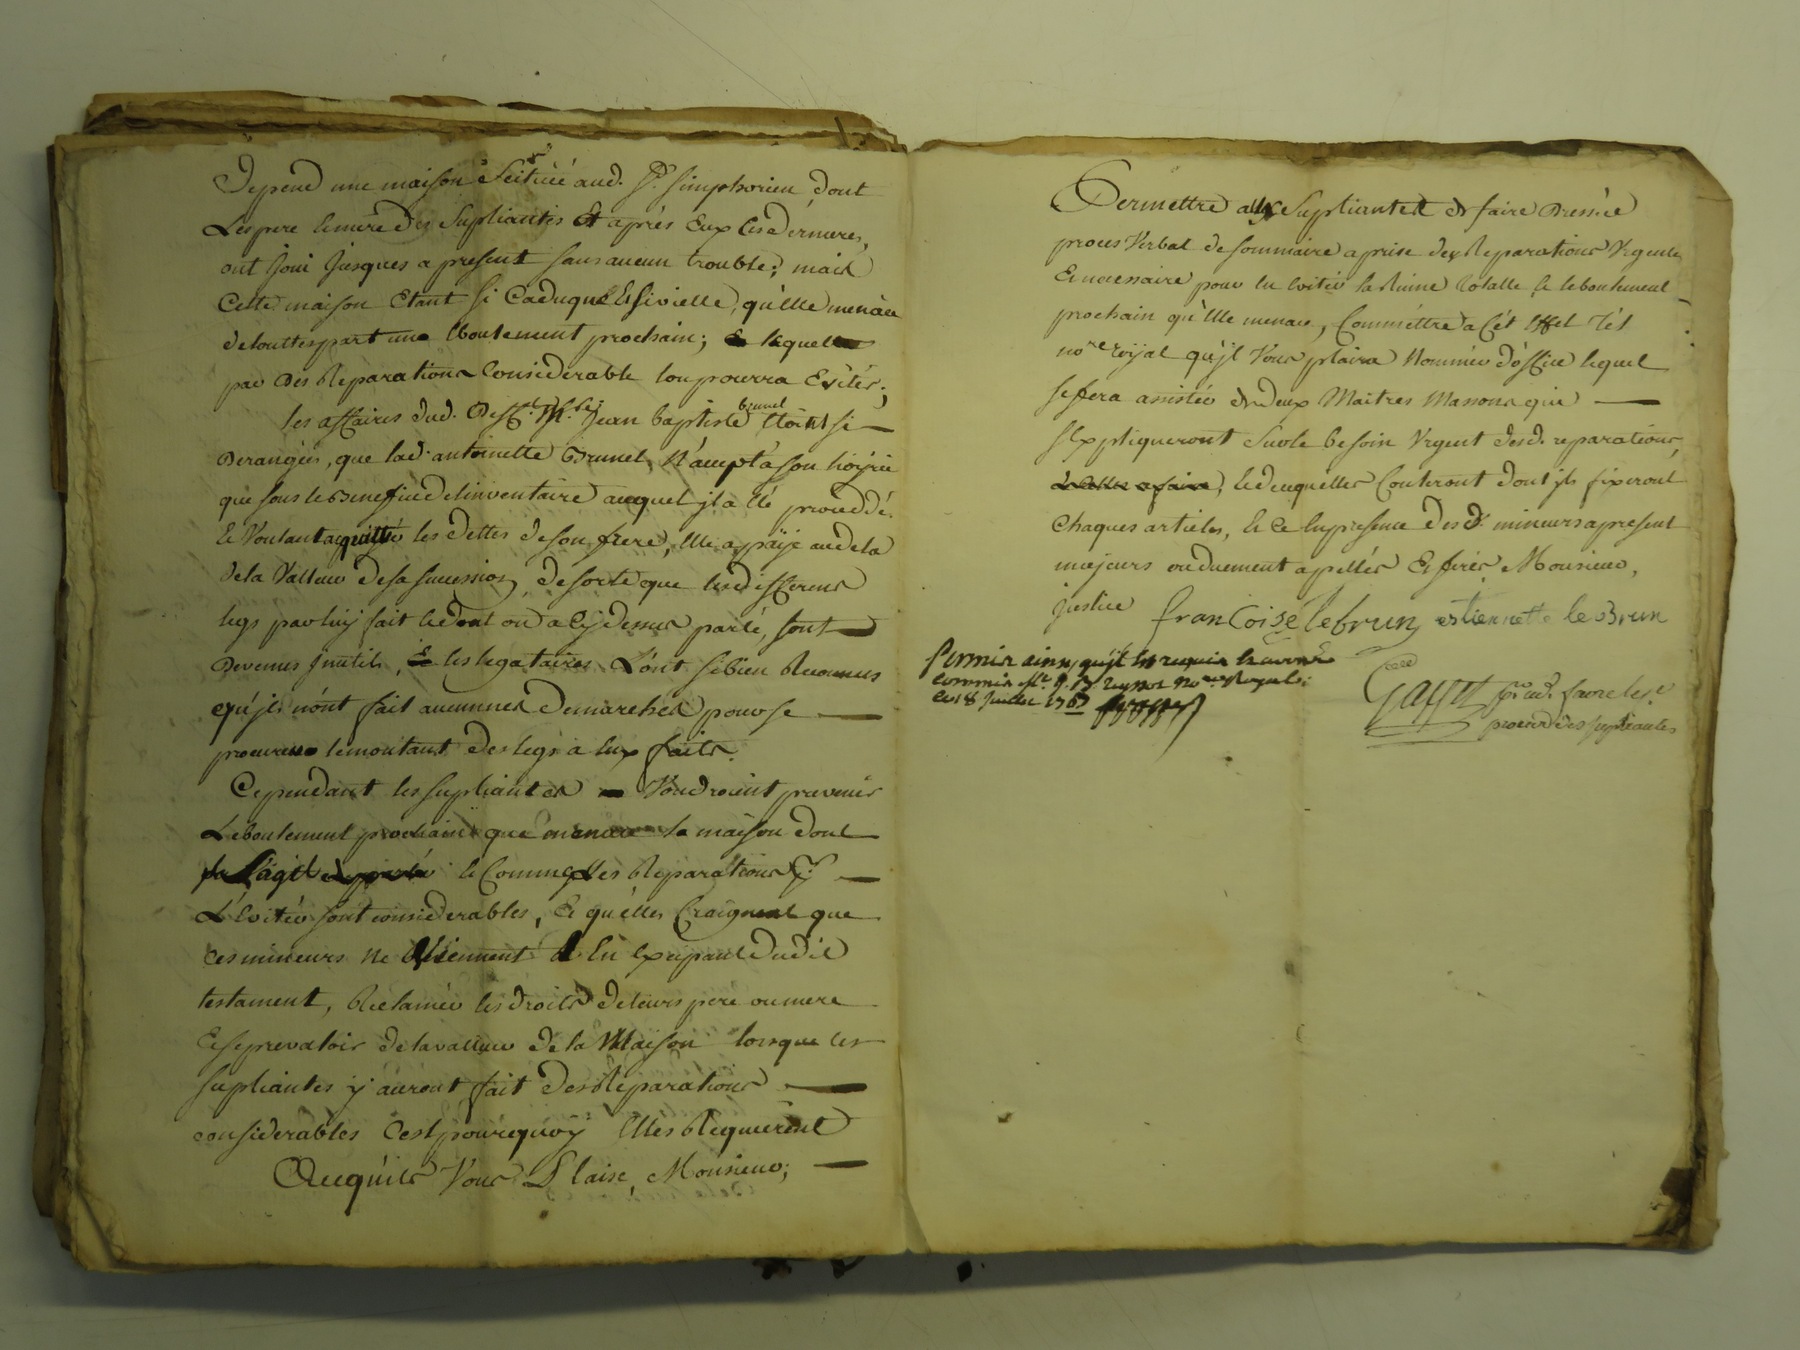 Depend une maison scituée aud. St. simphorien dont
Les pere & mere des supliantes Et après Eux Ces dérnieres,
ont joui jusques a present sans aucun trouble; mais
Cette maison Etant si Caduque Et si vielle, qu'elle menace
de touttes part une Eboulement prochain; lequel
par Des Reparations Considerable l'on pourra Evitér;
les affaires dud. Deft. Sr. Jean baptiste brunel étoint si
Derangées, que lad. antoinette Brunel N'acepta son hoyrie
que sous le Beneffice de l'inventaire auquel jl a été proceddé.
Et Voulant aquitter les dettes de son frere, Elle a païé audela
de la Valleur de sa sucession, de sorte que les differens
legs par luy fait & dont on a Cy dessus parlé, sont
Devenus jnutils, les legataires L'ont si bien Reconnus
qu'jls n'ont fait aucunnes Demarches pour se
procurer le montant des legs a Eux faits.
Cependant les supliantes Voudroient prevenir
L'eboulement prochain que menace la maison dont
s'agit & Comme les Reparations pr.
L'Evitér sont considerables, Et qu'elles Craignent que
Ces mineurs ne Viennent En Excipant dudit
testament, Reclamér les droits de leurs pere ou mere
Et se prevaloir de la valleur de la Maison lorsque les
supliantes y auront fait des Reparations
considerables C'est pourquoy Elles Requierent
Acequ'il Vous Plaise, Monsieur;
Permettre aux Supliantes de faire Dressée
procès Verbal de sommaire aprise des Reparations Urgentes
Et necessaire pour en Evitér la Ruine totalle & l'eboulement
prochain qu'Elle menace, Commettre a Cét Effet tél
nore. royal qu'jl Vous plaira Nommér d'óffice lequel
se fera assistér de deux Maitres Massons qui
s'Expliqueront sur le besoin Urgent desd. reparations,
& de cequ'elles Couteront dont jls fixeront
Chaques articles, & Ce En presence des d. mineurs a present
majeurs ou duement apellés Et ferés, Monsieur,
justice francoise lebrun estiennette le Brun
permis ainsy qu'jl Est requis
commis Me. J. B. nore Royal
ce 18 Juillet 1767
procur des supliantes